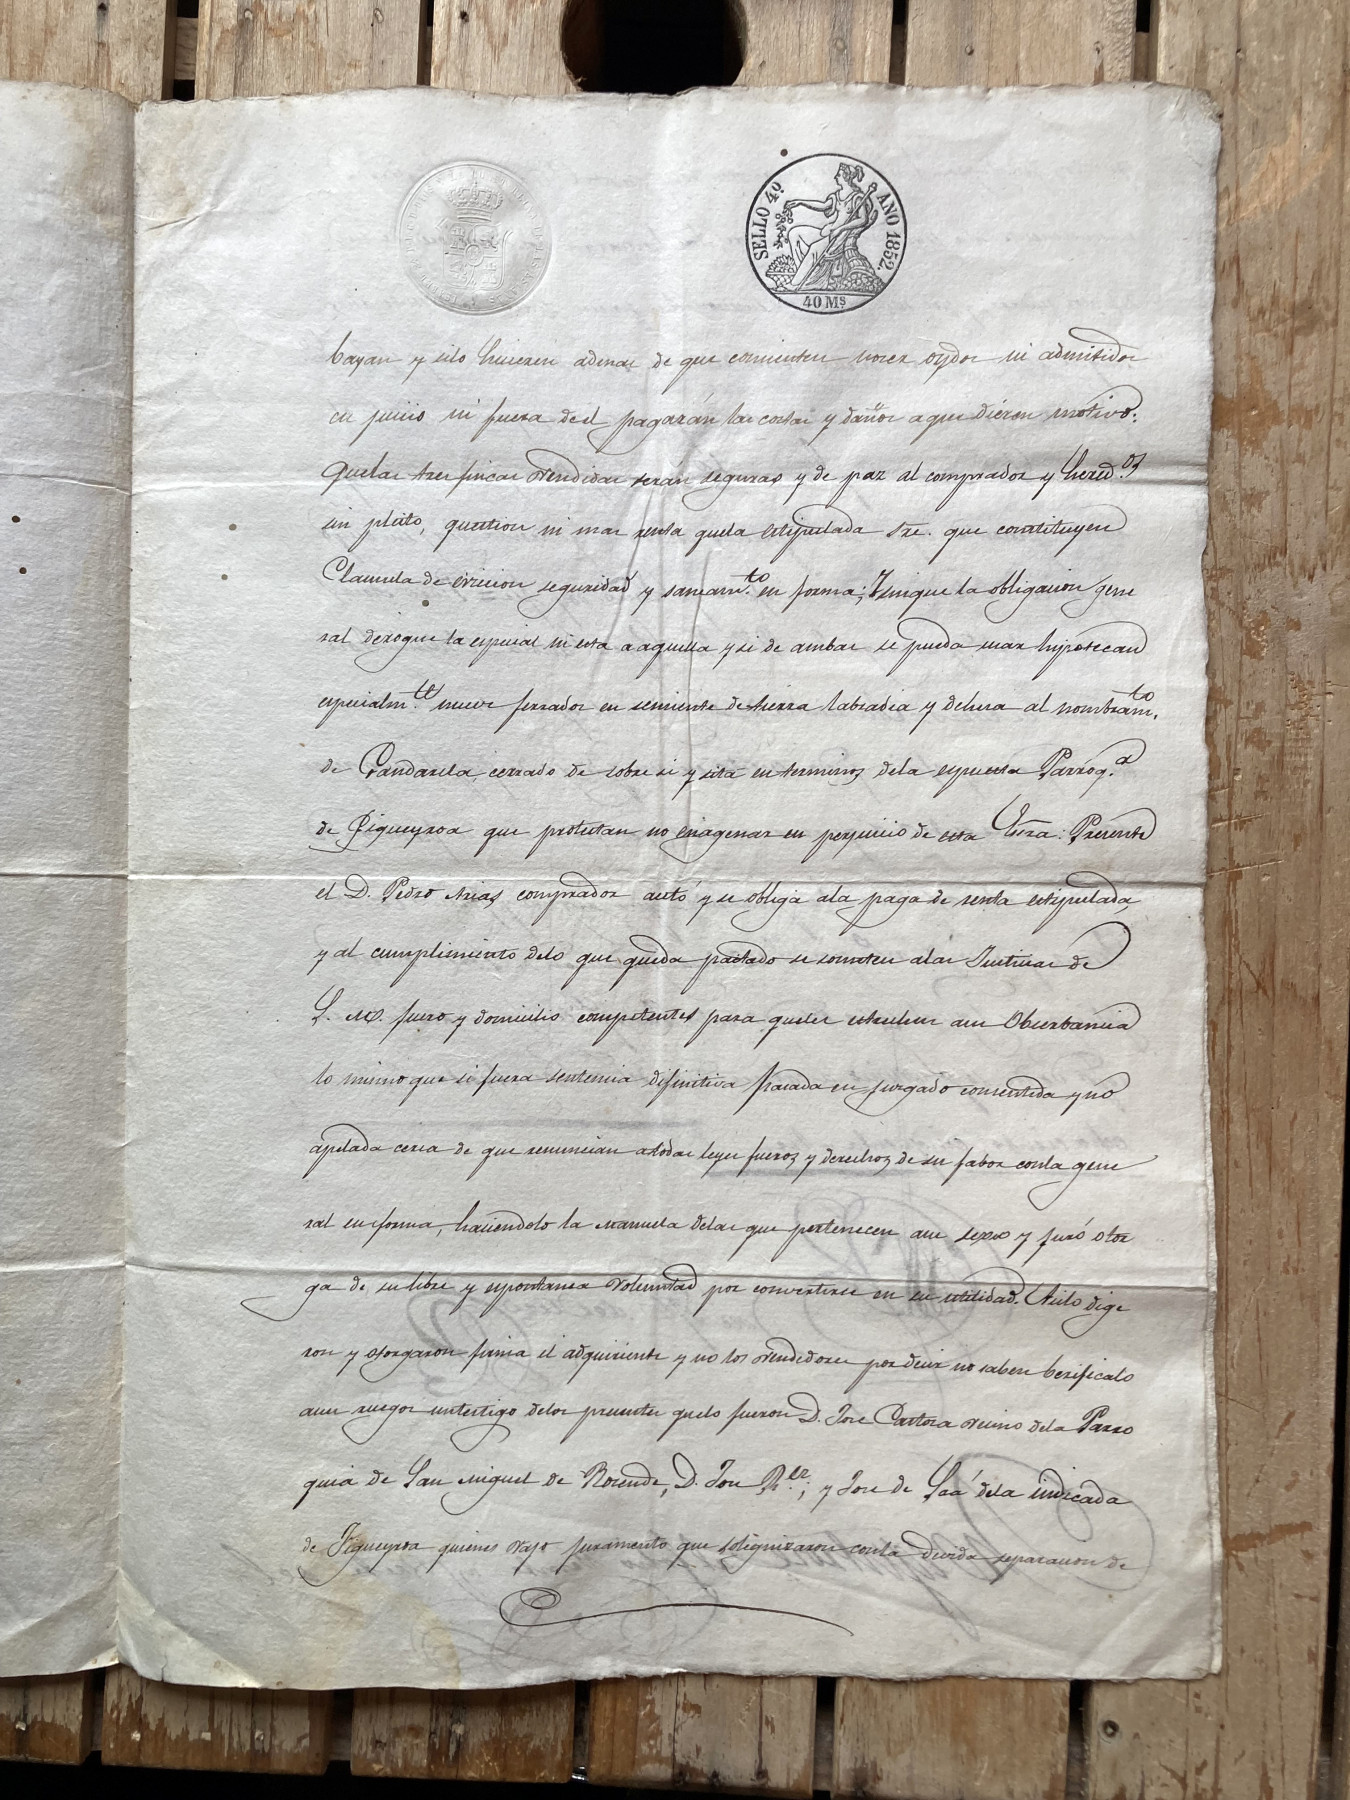 SELLO 4º AÑO 1852.
40 Ms
bayan y silo hicieren ademas de que consienten noser oydos ni admitidos
en juicio ni fuera de el pagarán las costas y daños aque dieren motivo:
Quelas tres fincas vendidas serán seguras y de paz al comprador y hered.os
sin pleito, question ni mas renta quela estipulada sre. que constituyen
Clausula de eviccion seguridad y saneam.to en forma; Ysinque la obligacion gene
ral derogue la especial ni esta a aquella y si de ambas se pueda usar hipotecan
especialm.te nueve ferrados en semiente de tierra labradia y dehesa al nombram.to
de Gandarela cerrado de sobre si y sita en terminos dela espuesta Parroq.a
de Figueyroa que protestan no enagenar en perjuicio de esta Escra: Presente
el D. Pedro Arias comprador autó y se obliga ala paga de renta estipulada
y al cumplimiento delo que queda pactado se someten alas Justicias de
S. M. fuero y domicilio competentes para queles estrechen asu Observancia
lo mismo que si fuera sentencia difinitiva pasada en jurgado consentida y no
apelada cerca de que renuncian atodas leyes fueros y derechos de su fabor conla gene
ral en forma, haciendolo la Manuela delas que pertenecen asu sexso y juró otor
ga de su libre y espontanea voluntad por convertirse en su utilidad. Asilo dige
ron y otorgaron firma el adquiriente y no los vendedores por decir no saben berificalo
asus ruegos untestigo delos presentes quelo fueron D. Jose Cartora vecino dela Parro
quia de San Miguel de Rosende, D. Jose R.ez; y Jose de Saá dela indicada
de Figueyroa quienes vajo juramento que solegnizaron conla devida separacion de